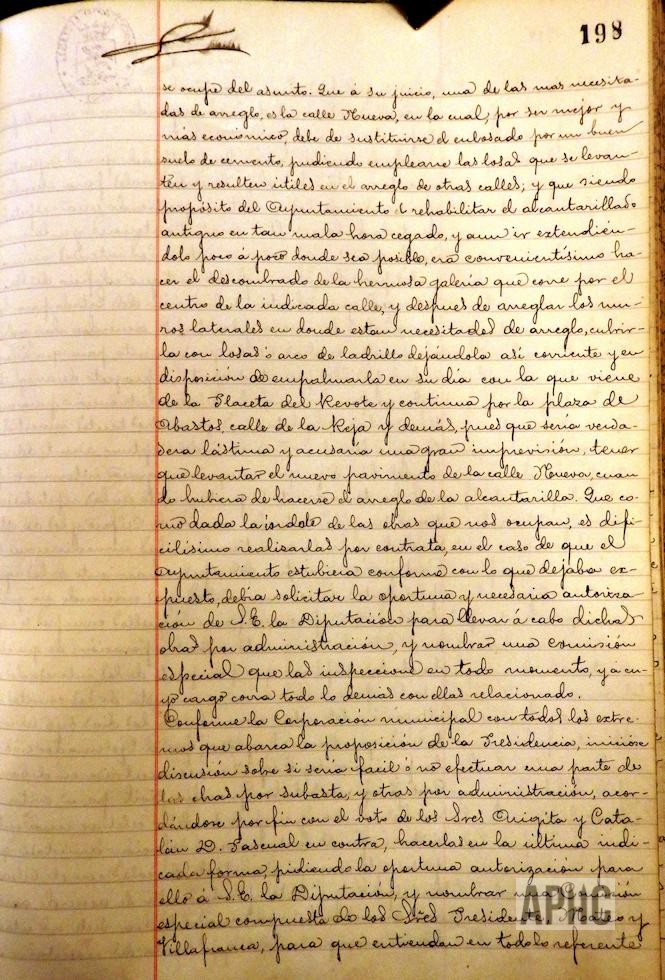 198
se ocupe del asunto. Que á su juicio, una de las mas necesita-
das de arreglo, es la calle Nueva, en la cual, por ser mejor y
más económico, debe de sustituirse el enlosado por un buen
suelo de cemento, pudiendo emplearse las losas que se levan-
ten y resulten útiles en el arreglo de otras calles; y que siendo
propósito del Ayuntamiento el rehabilitar el alcantarillado
antiguo en tan mala hora cegado, y aun ir extendién-
dolo poco á poco donde sea posible, era convenientísimo ha-
cer el descombrado de la hermosa galería que corre por el
centro de la indicada calle, y despues de arreglar los mu-
ros laterales en donde estan necesitados de arreglo, cubrir-
la con losas ó arco de ladrillo dejándola así corriente y en
disposición de empalmarla en su dia con la que viene
de la Placeta del Revote y continua por la plaza de
Abastos, calle de la Reja y demás, pues que sería verda-
dera lástima y acusaría una gran imprevisión, tener
que levantar el nuevo pavimento de la calle Nueva, cuan-
do hubiera de hacerse el arreglo de la alcantarilla. Que co-
mo dada la índole de las obras que nos ocupan, es difi-
cilísimo realizarlas por contrata, en el caso de que el
Ayuntamiento estubiera conforme con lo que dejaba ex-
puesto, debía solicitar la oportuna y necesaria autoriza-
ción de S.E. la Diputación para llevar á cabo dichas
obras por administración, y nombrar una comisión
especial que las inspeccione en todo momento, y á cu-
yo cargo corra todo lo demás con ellas relacionado.
Conforme la Corporación municipal con todos los extre-
mos que abarca la proposición de la Presidencia, inicióse
discusión sobre si sería facil ó no efectuar una parte de
las obras por subasta, y otras por administración, acor-
dándose por fin con el voto de los Sres Ongita y Cata-
lán D. Pascual en contra, hacerlas en la última indi-
cada forma, pidiendo la oportuna autorización para
ello á S.E. la Diputación, y nombrar una Comisión
especial compuesta de los Sres Presidente, Mateo y
Villafranca, para que entiendan en todo lo referente
APHC